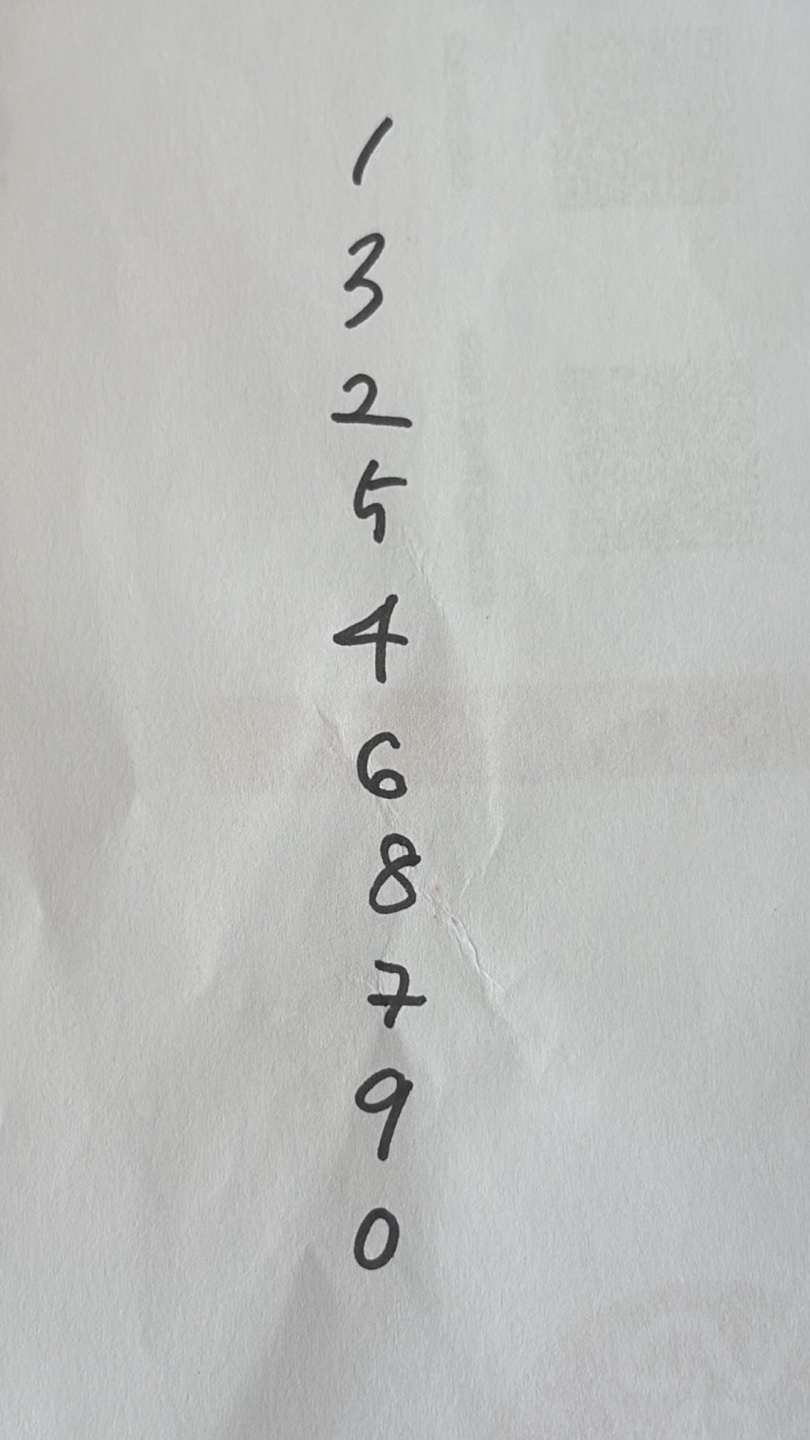 1
3
2
5
4
6
8
7
9
0